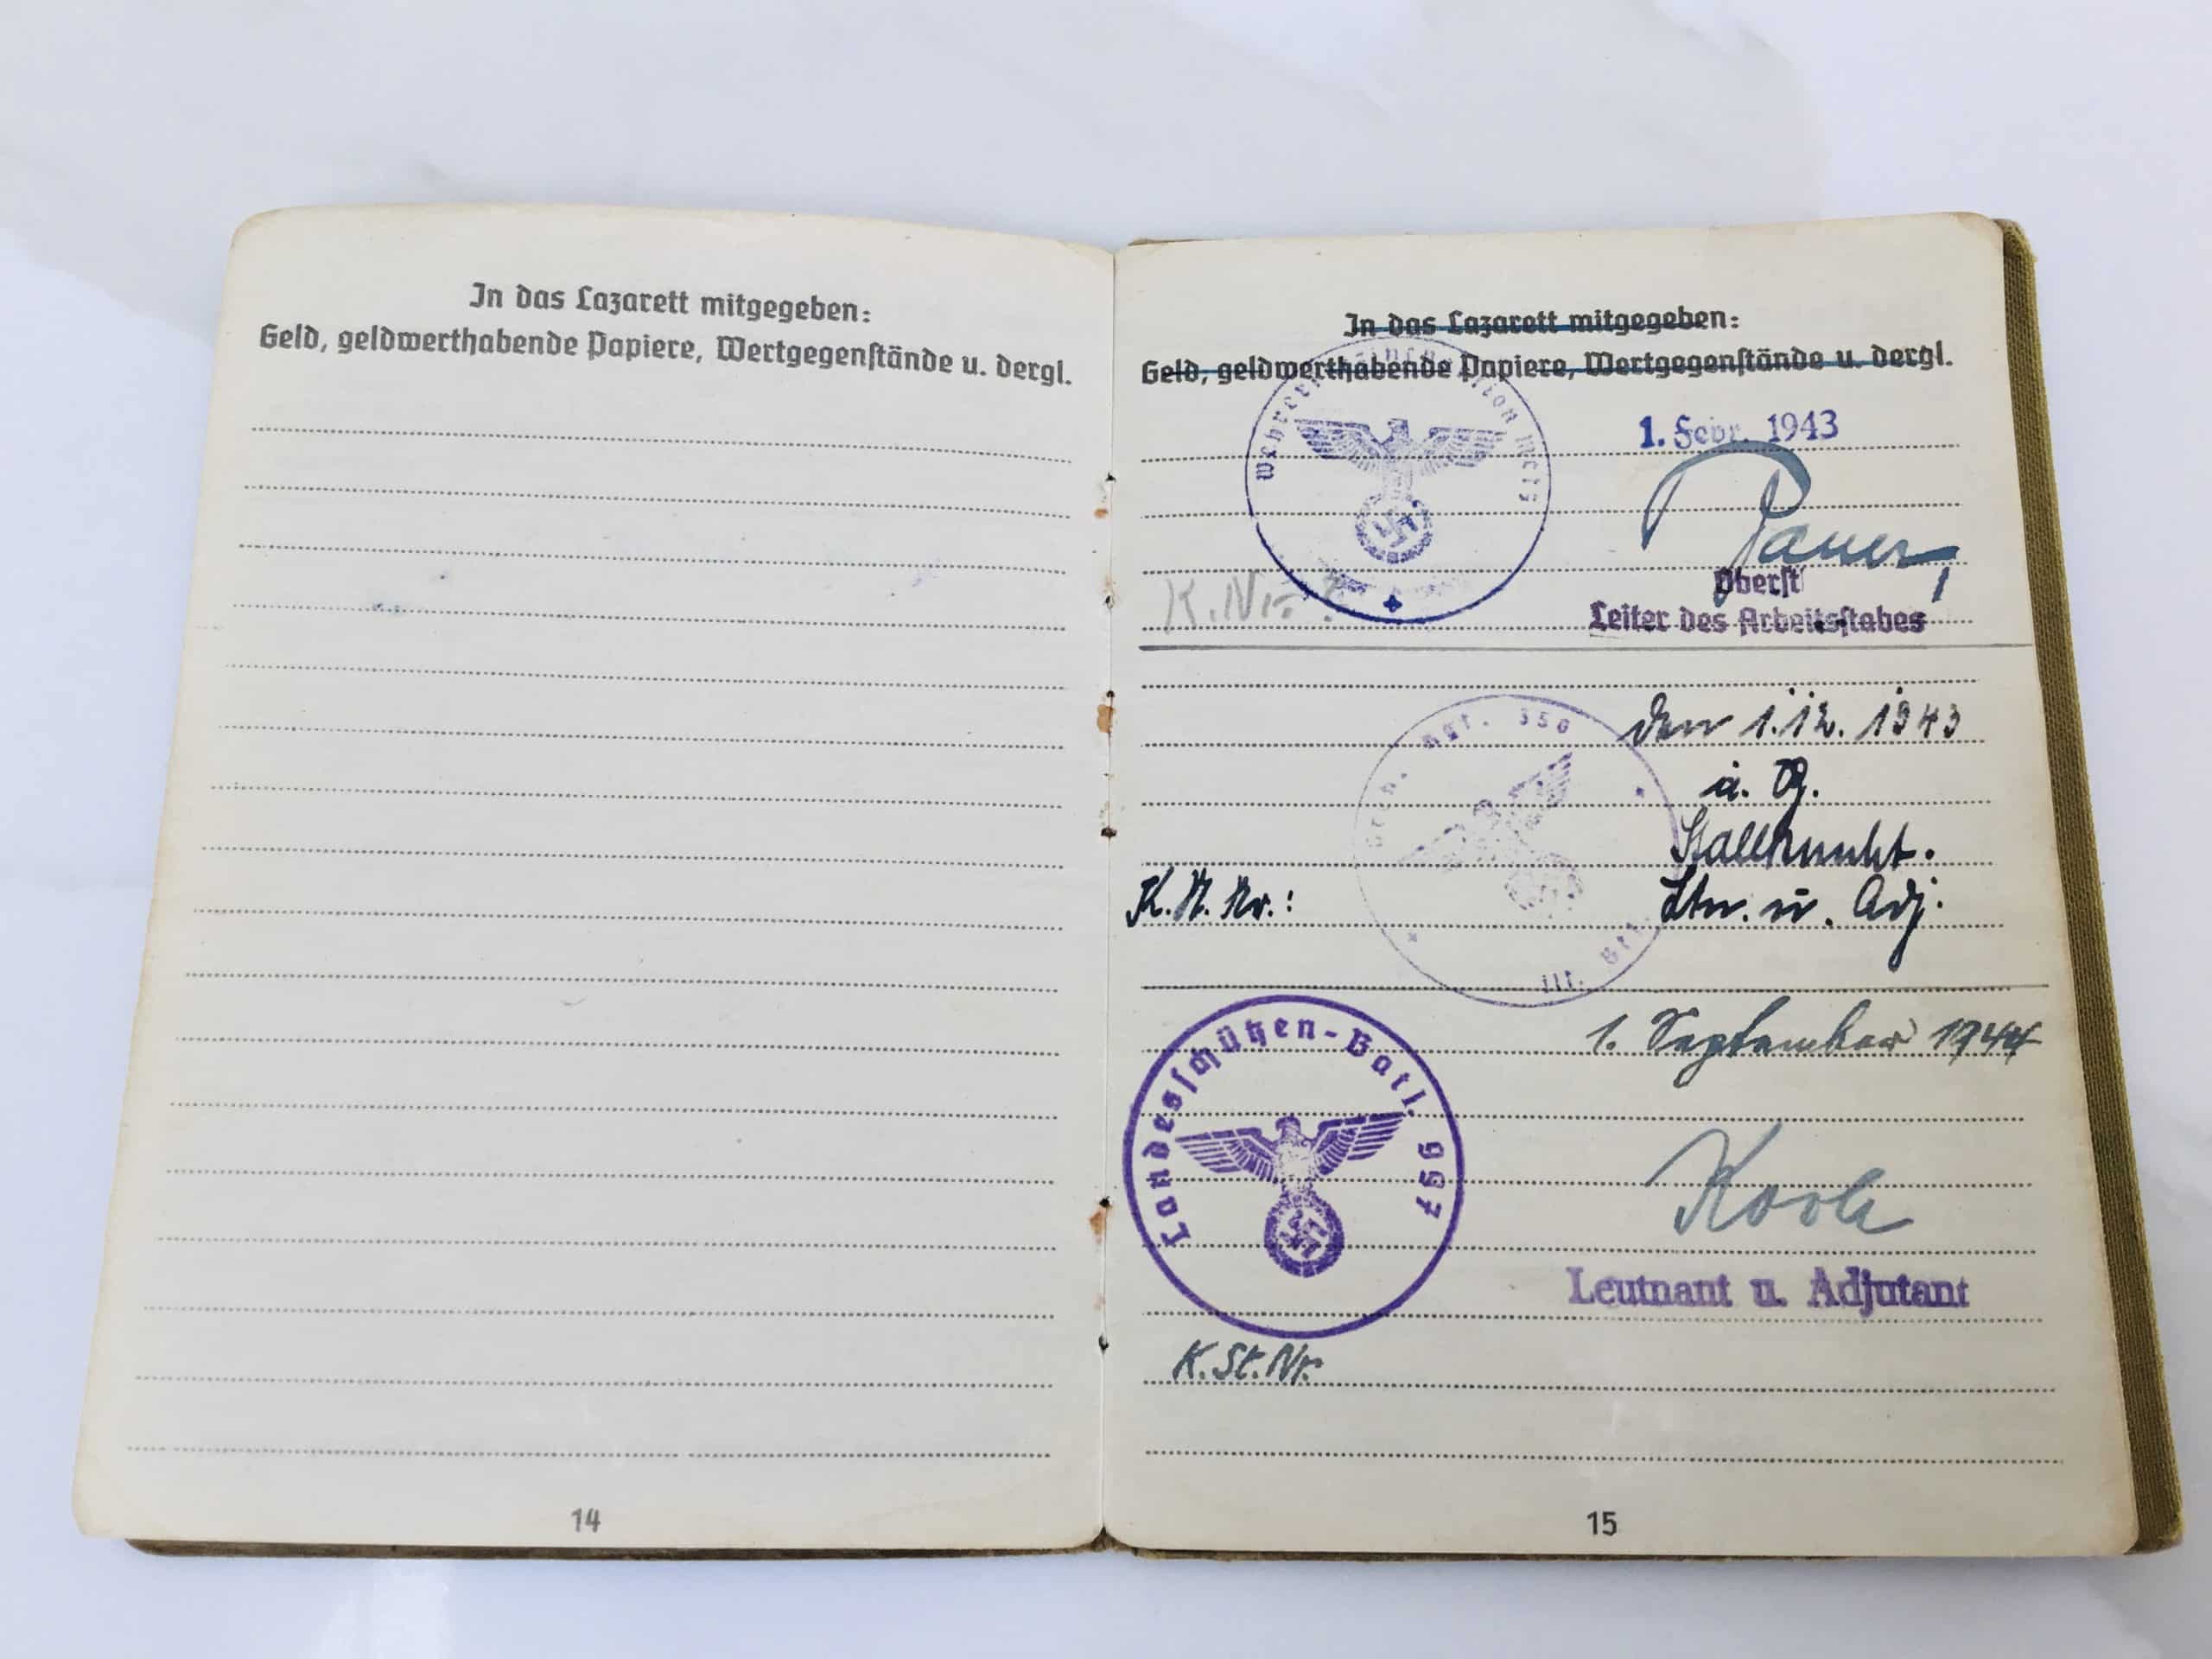 In das Lazarett mitgegeben:
Geld, geldwerthabende Papiere, Wertgegenstände u. dergl.
14
In das Lazarett mitgegeben:
Geld, geldwerthabende Papiere, Wertgegenstände u. dergl.
1. Febr. 1943
K.Nr.
Oberst
Leiter des Arbeitsstabes
den 1.12.1943
Rgt. 350
III. Btl.
Ltn. u. Adj.
1. September 1944
Landesschützen-Batl. 997
Leutnant u. Adjutant
K.St.Nr.
15